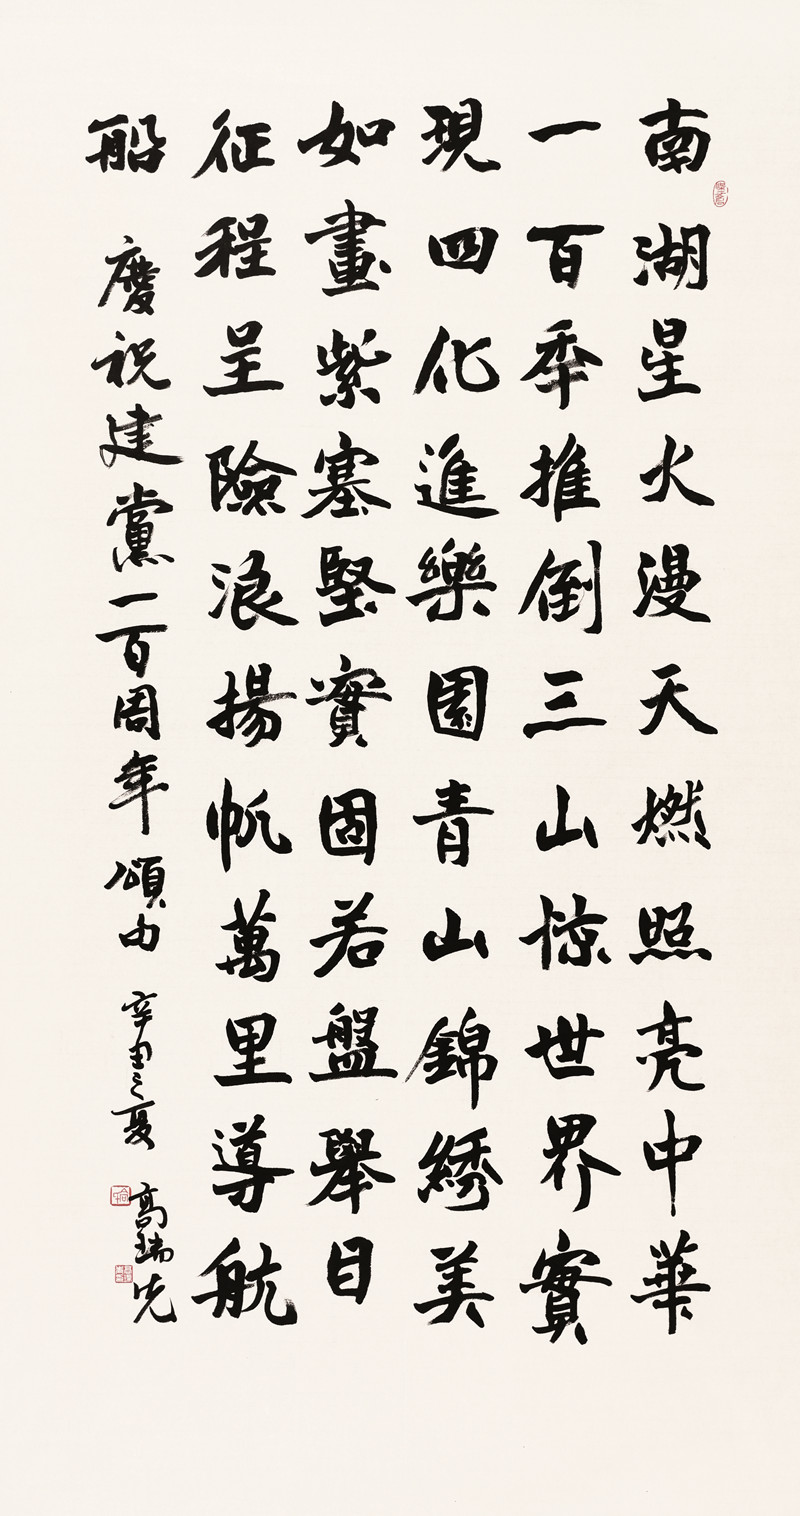 南湖星火漫天燃照亮中華
一百年推倒三山惊世界實
現四化進樂園青山錦綉美
如畫紫塞堅實固若盤舉日
征程呈險浪揚帆萬里導航
船 慶祝建黨一百周年頌 辛丑之夏 高瑞先